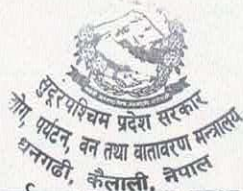 सुदूरपश्चिम प्रदेश सरकार
पर्यटन, वन तथा वातावरण मन्त्रालय
धनगढी, कैलाली, नेपाल